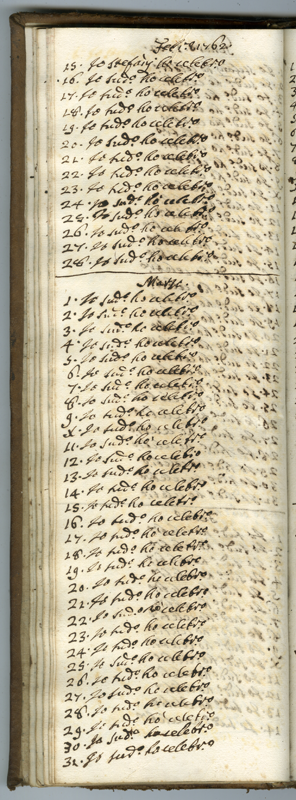 Feb: 1762
15. Io Stefani ho celebro
16. Io sud.o ho celebro
17. Io sud.o ho celebro
18. Io sud.o ho celebro
19. Io sud.o ho celebro
20. Io sud.o ho celebro
21. Io sud.o ho celebro
22. Io sud.o ho celebro
23. Io sud.o ho celebro
24. Io sud.o ho celebro
25. Io sud.o ho celebro
26. Io sud.o ho celebro
27. Io sud.o ho celebro
28. Io sud.o ho celebro
1. Io sud.o ho celebro
2. Io sud.o ho celebro
3. Io sud.o ho celebro
4. Io sud.o ho celebro
5. Io sud.o ho celebro
6. Io sud.o ho celebro
7. Io sud.o ho celebro
8. Io sud.o ho celebro
9. Io sud.o ho celebro
X. Io sud.o ho celebro
11. Io sud.o ho celebro
12. Io sud.o ho celebro
13. Io sud.o ho celebro
14. Io sud.o ho celebro
15. Io sud.o ho celebro
16. Io sud.o ho celebro
17. Io sud.o ho celebro
18. Io sud.o ho celebro
19. Io sud.o ho celebro
20. Io sud.o ho celebro
21. Io sud.o ho celebro
22. Io sud.o ho celebro
23. Io sud.o ho celebro
24. Io sud.o ho celebro
25. Io sud.o ho celebro
26. Io sud.o ho celebro
27. Io sud.o ho celebro
28. Io sud.o ho celebro
29. Io sud.o ho celebro
30. Io sud.o ho celebro
31. Io sud.o ho celebro